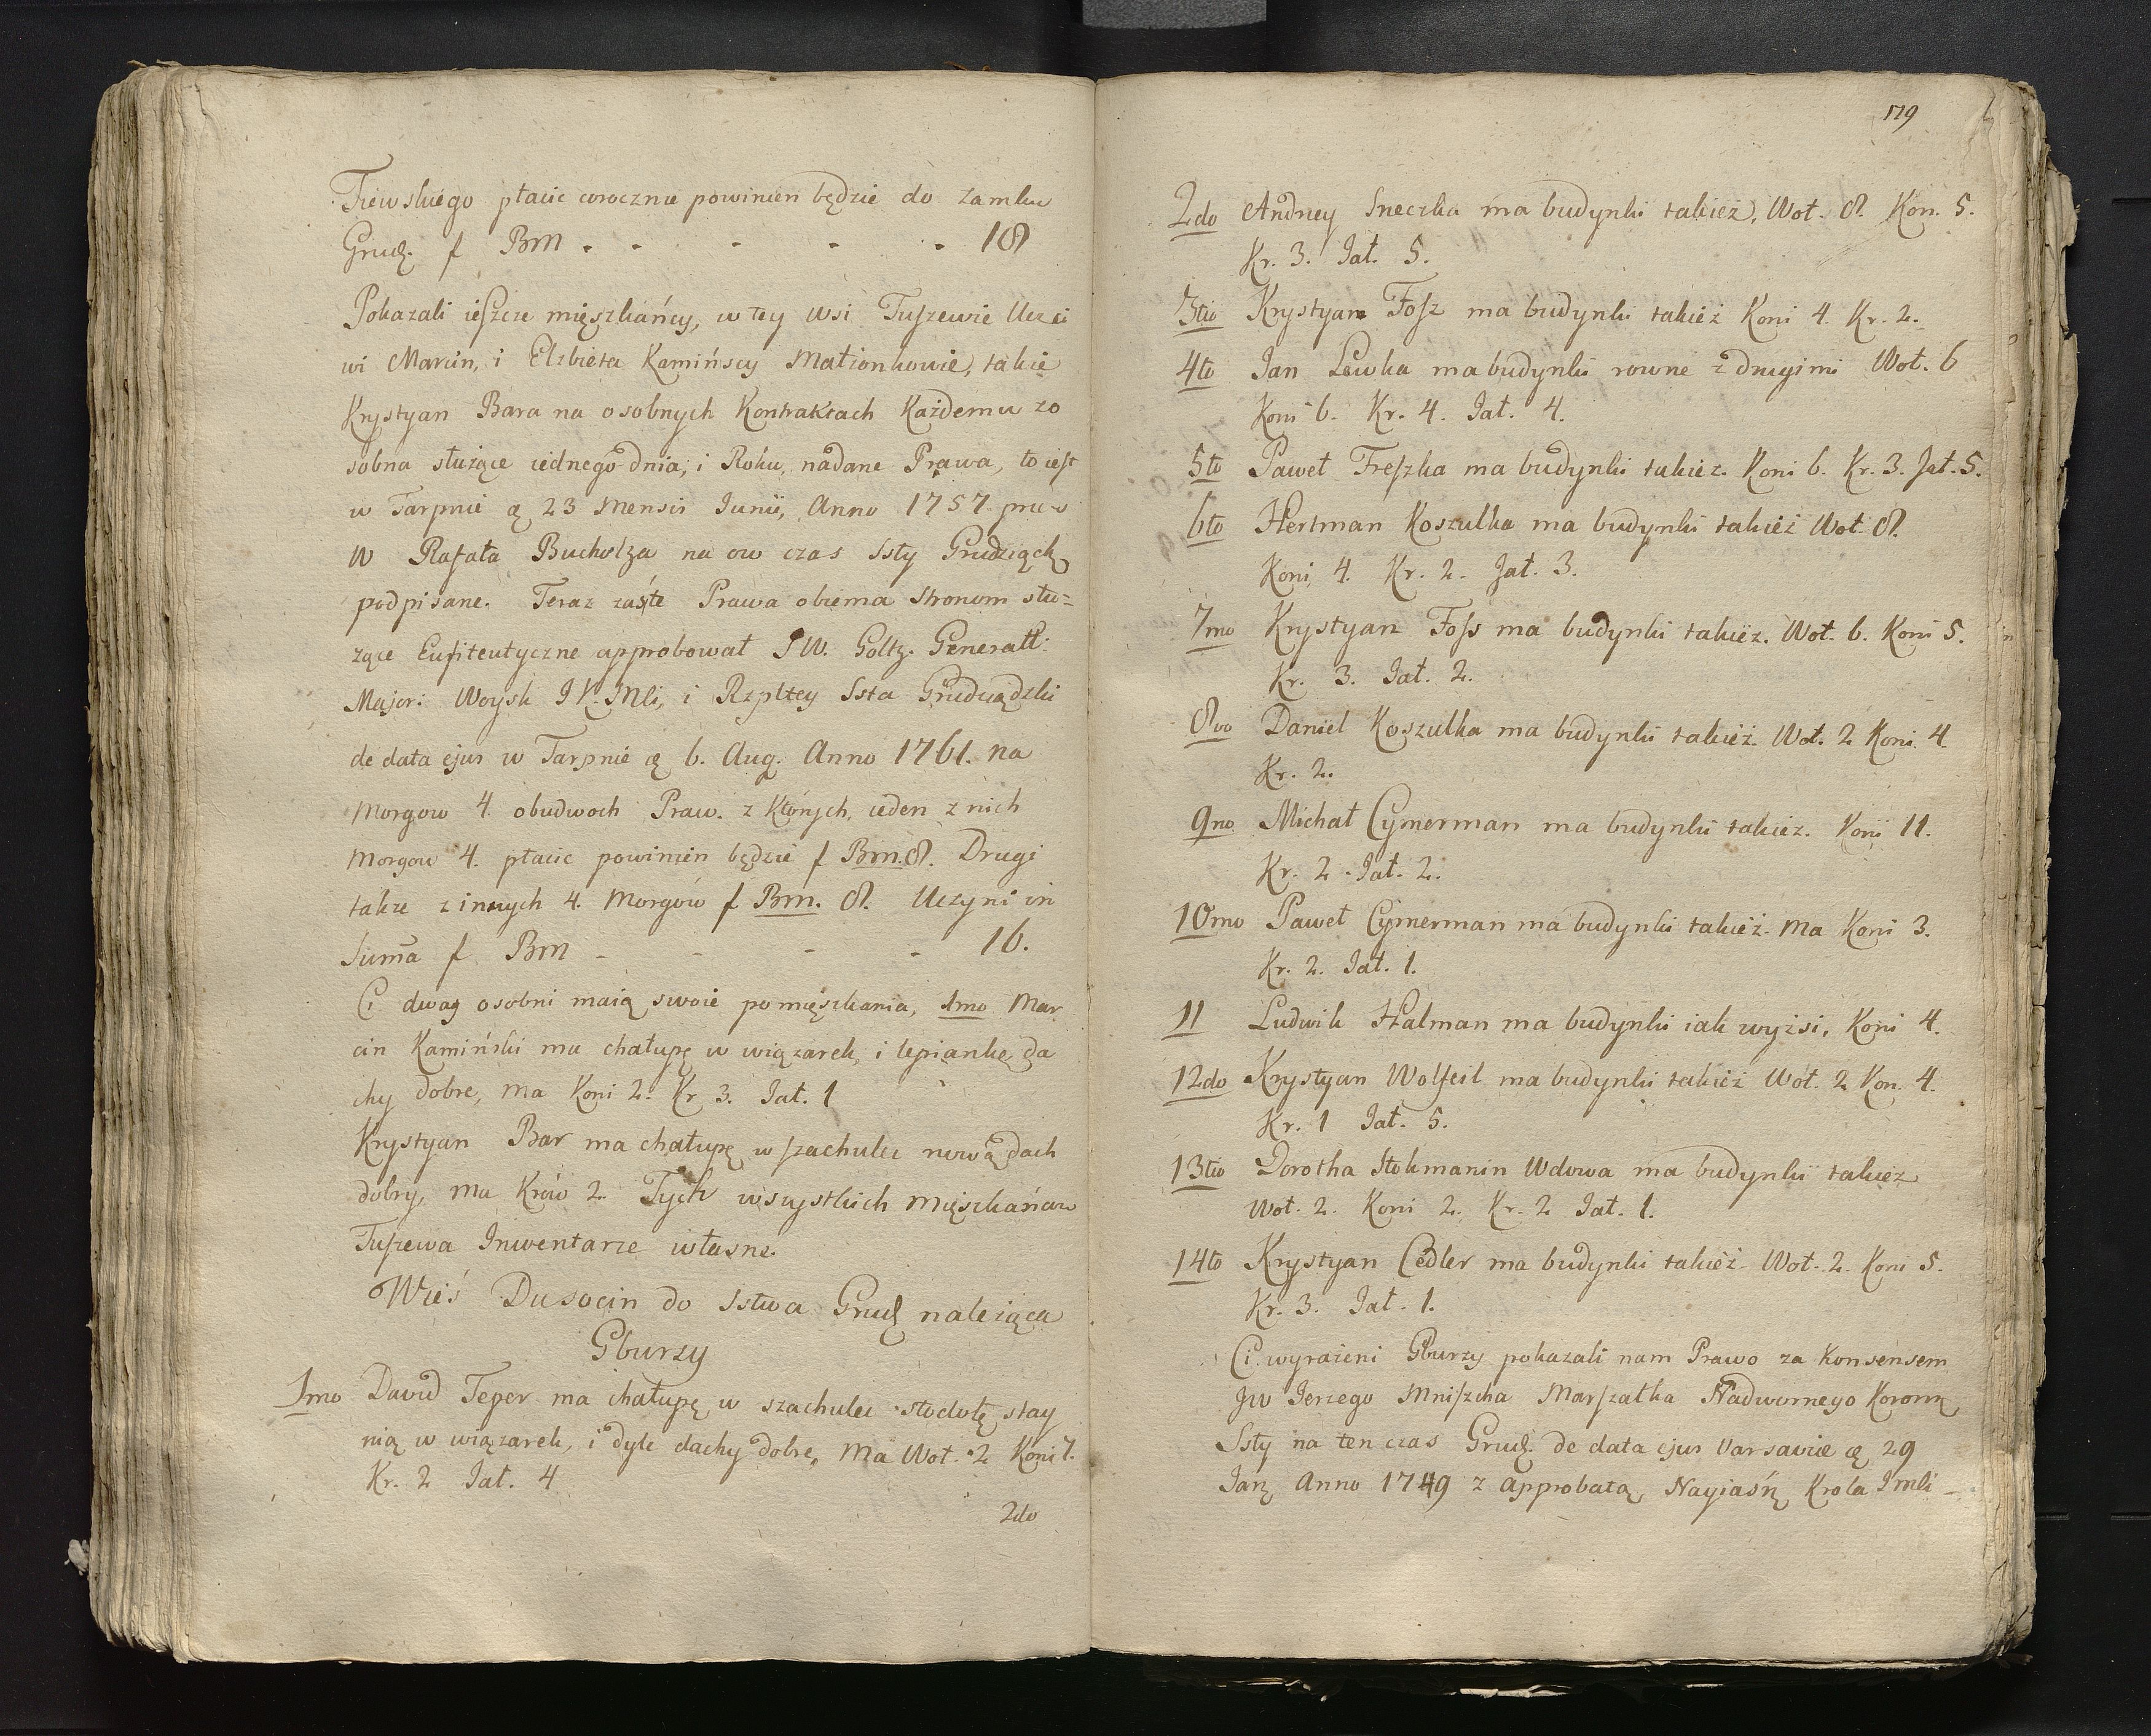 Tiewskiego płacic corocznie powinien będzie do Zamku
Grudz. f Bm - - - - - 18
Pokazali ieszcze mięszkańcy, w tey Wsi Tuszewie Uczci
wi Marcin, i Elzbieta Kamińscy Małżonkowie, takie
Krystyan Bara na osobnych Kontraktach Każdemu zo
sobna służące iednego dnia, i Roku, nadane Prawa, to iest
w Tarpnie ą 23 Mensis Iunii, Anno 1757 przez
W Rafała Bucholza na ow czas Ssty Grudziąck
podpisane. Teraz zaś te Prawa obiema Stronom słu=
zące Eufiteutyczne approbował JW. Goltz. Generall:
Major: Woysk I K. Mli, i Rzpltey Ssta Grudziądzki
de data ejus w Tarpnie ą 6. Aug. Anno 1761. na
Morgow 4. obudwoch Praw. z Których, ieden z nich
Morgow 4. płacic powinien będzie f Bm. 8. Drugi
takze z innych 4. Morgów f Bm. 8. Uczyni in
Suma f Bm - - - - 16.
Ci dway osobni maią swoie pomięszkania, 1mo Mar
cin Kamiński ma chałupę w wiązarek, i lepiankę da
chy dobre, ma Koni 2. Kr 3. Jał. 1
Krystyan Bar ma chałupę w szachulec nową dach
dobry, ma Krów 2. Tych wszystkich Mięszkańcow
Tuszewa Inwentarze własne.
Wieś Dusocin do Sstwa Grudz należąca
Gburzy
1mo David Teper ma chałupę w szachulec stodołę stay
nią w wiązarek, i dyle dachy dobre, ma Woł. 2 Koni 7.
Kr. 2 Jał. 4
2do
179
2do Andrzey Sneczka ma budynki takież, Woł. 8. Kon. 5.
Kr. 3. Jał. 5.
3tio Krystyan Fosz ma budynki takież Koni 4. Kr. 2.
4to Jan Lewka ma budynki rowne z drugimi Woł. 6
Koni 6. Kr. 4. Jał. 4.
5to Paweł Freszka ma budynki takież. Koni 6. Kr. 3. Jał. 5.
6to Hertman Koszulka ma budynki takież Woł. 8.
Koni 4. Kr. 2. Jał. 3.
7mo Krystyan Foss ma budynki takież. Woł. 6. Koni 5.
Kr. 3. Jał. 2.
8vo Daniel Koszulka ma budynki takież. Woł. 2 Koni 4.
Kr. 2.
9no Michał Cymerman ma budynki takież. Koni 11.
Kr. 2. Jał. 2.
10mo Paweł Cymerman ma budynki takież. Ma Koni 3.
Kr. 2. Jał. 1.
11 Ludwik Halman ma budynki iak wyżsi, Koni 4.
12do Krystyan Wolfeil ma budynki takież Woł. 2 Kon. 4.
Kr. 1 Jał. 5.
13tio Dorotha Stokmanin Wdowa ma budynki takież
Woł. 2. Koni 2. Kr. 2 Jał. 1.
14to Krystyan Cedler ma budynki takież. Woł. 2. Koni 5.
Kr. 3. Jał. 1.
Ci wyrażeni Gburzy pokazali nam Prawo za Konsensem
JW Jerzego Mniszcha Marszałka Nadwornego Koronn
Ssty na ten czas Grudz. de data ejus Varsaviæ ą 29
Jan Anno 1749 z Approbatą Nayiaśn Krola Jmli -